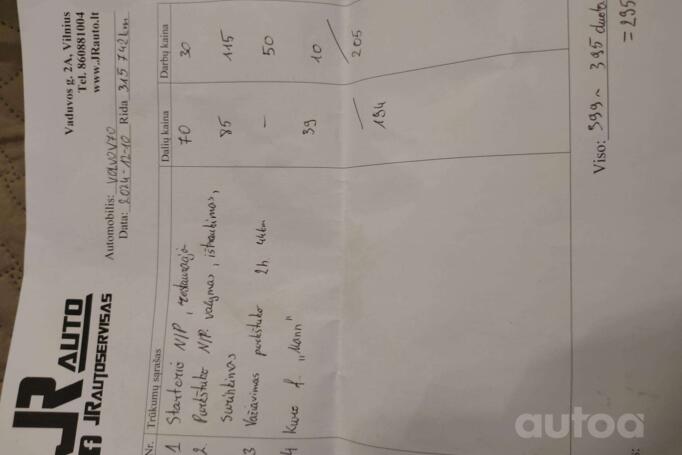 JR AUTO
JRAUTOSERVISAS
Vaduvos g. 2A, Vilnius
Tel. 860881004
www.JRauto.lt
Automobilis: VOLVO V70
Data: 2024-12-10 Rida 315 742 km
Nr. Trūkumų sąrašas Dalių kaina Darbų kaina
1 Starterio N/P, restauracija 70 30
2 Purkštuko N/P. valymas, ištraukimas, 85 115
surinkimas
3 Važiavimas purkštuko 2h. 44km - 50
4 Kuro f. „Mann" 39 10
194 205
Viso: 399~ 395 duota
= 295
autoa